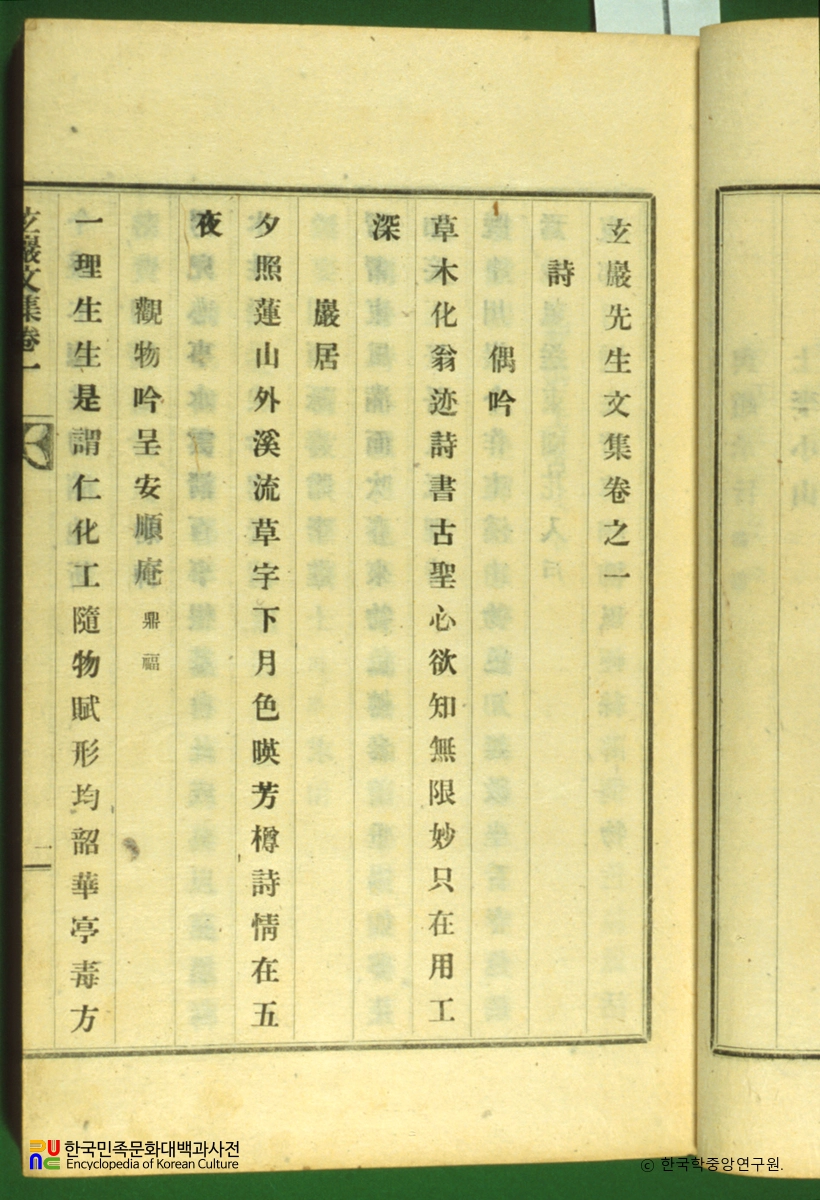 玄巖先生文集卷之一
詩
偶吟
草木化翁迹詩書古聖心欲知無限妙只在用工
深
巖居
夕照蓮山外溪流草字下月色暎芳樽詩情在五
夜
觀物吟呈安順庵鼎福
一理生生是謂仁化工隨物賦形均韶華亭毒方
玄巖文集卷一
一
한국민족문화대백과사전
Encyclopedia of Korean Culture
© 한국학중앙연구원.